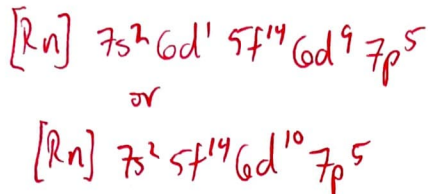 [Rn] 7s² 6d¹ 5f¹⁴ 6d⁹ 7p⁵
or
[Rn] 7s² 5f¹⁴ 6d¹⁰ 7p⁵